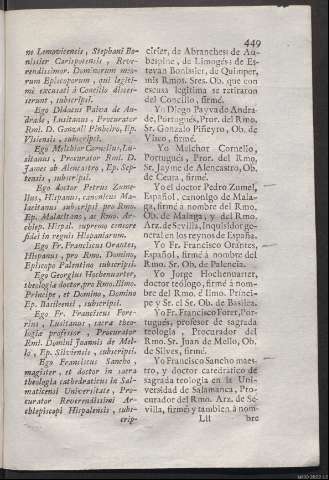 449
ne Lemovicensis, Stephani Bo-
nissier Corisopitensis, Reve-
rendissimor. Dominorum meo-
rum Episcoporum, qui legiti-
mè excusati à Concilio disces-
serunt, subscripsi.
Ego Didacus Paiva de An-
drade, Lusitanus, Procurator
Rml. D. Gonzali Pinheiro, Ep.
Visiensis, subscripsi.
Ego Melchior Cornelius, Lu-
sitanus, Procurator Rml. D.
Jacobi ab Alencastro, Ep. Sep-
tensis, subscripsi.
Ego doctor Petrus Zume-
llus, Hispanus, canonicus Ma-
lacitanus subscripsi pro Rmo.
Ep. Malacitano, ac Rmo. Ar-
chiep. Hispal. supremo censore
fidei in regnis Hispaniarum.
Ego Fr. Franciscus Orantes,
Hispanus, pro Rmo. Domino,
Episcopo Palentino subscripsi.
Ego Georgius Hochenuarter,
theologia doctor, pro Rmo. Illmo.
Principe, et Domino, Domino
Ep. Basileensi, subscripsi.
Ego Fr. Franciscus Fore-
rius, Lusitanus, sacra theo-
logia professor, Procurator
Rml. Domini Joannis de Mel-
lo, Ep. Silvensis, subscripsi.
Ego Franciscus Sancho,
magister, et doctor in sacra
theologia cathedraticus in Sal-
maticensi Universitate, Pro-
curator Reverendissimi Ar-
chiepiscopi Hispalensis, subs-
crip-
cleler, de Abranches: de Au-
bespine, de Limoges: de Es-
tevan Bonissier, de Quimper,
mis Rmos. Sres. Ob. que con
escusa legítima se retiraron
del Concilio, firmé.
Yo Diego Payva de Andra-
de, Portugués, Pror. del Rmo.
Sr. Gonzalo Piñeyro, Ob. de
Viseo, firmé.
Yo Melchor Cornello,
Portugués, Pror. del Rmo.
Sr. Jayme de Alencastro, Ob.
de Ceuta, firmé.
Yo el doctor Pedro Zumel,
Español, canonigo de Mala-
ga, firmé a nombre del Rmo.
Ob. de Malaga, y del Rmo.
Arz. de Sevilla, Inquisidor ge-
neral en los reynos de España.
Yo Fr. Francisco Orantes,
Español, firmé á nombre del
Rmo. Sr. Ob. de Palencia.
Yo Jorge Hochenuarter,
doctor teólogo, firmé á nom-
bre del Rmo. é Ilmo. Prínci-
pe y Sr. el Sr. Ob. de Basilea.
Yo Fr. Francisco Forer, Por-
tugués, profesor de sagrada
teología, Procurador del
Rmo. Sr. Juan de Mello, Ob.
de Silves, firmé.
Yo Francisco Sancho maes-
tro, y doctor catedrático de
sagrada teología en la Uni-
versidad de Salamanca, Pro-
curador del Rmo. Arz. de Se-
villa, firmé; y tambien á nom-
Lll bre